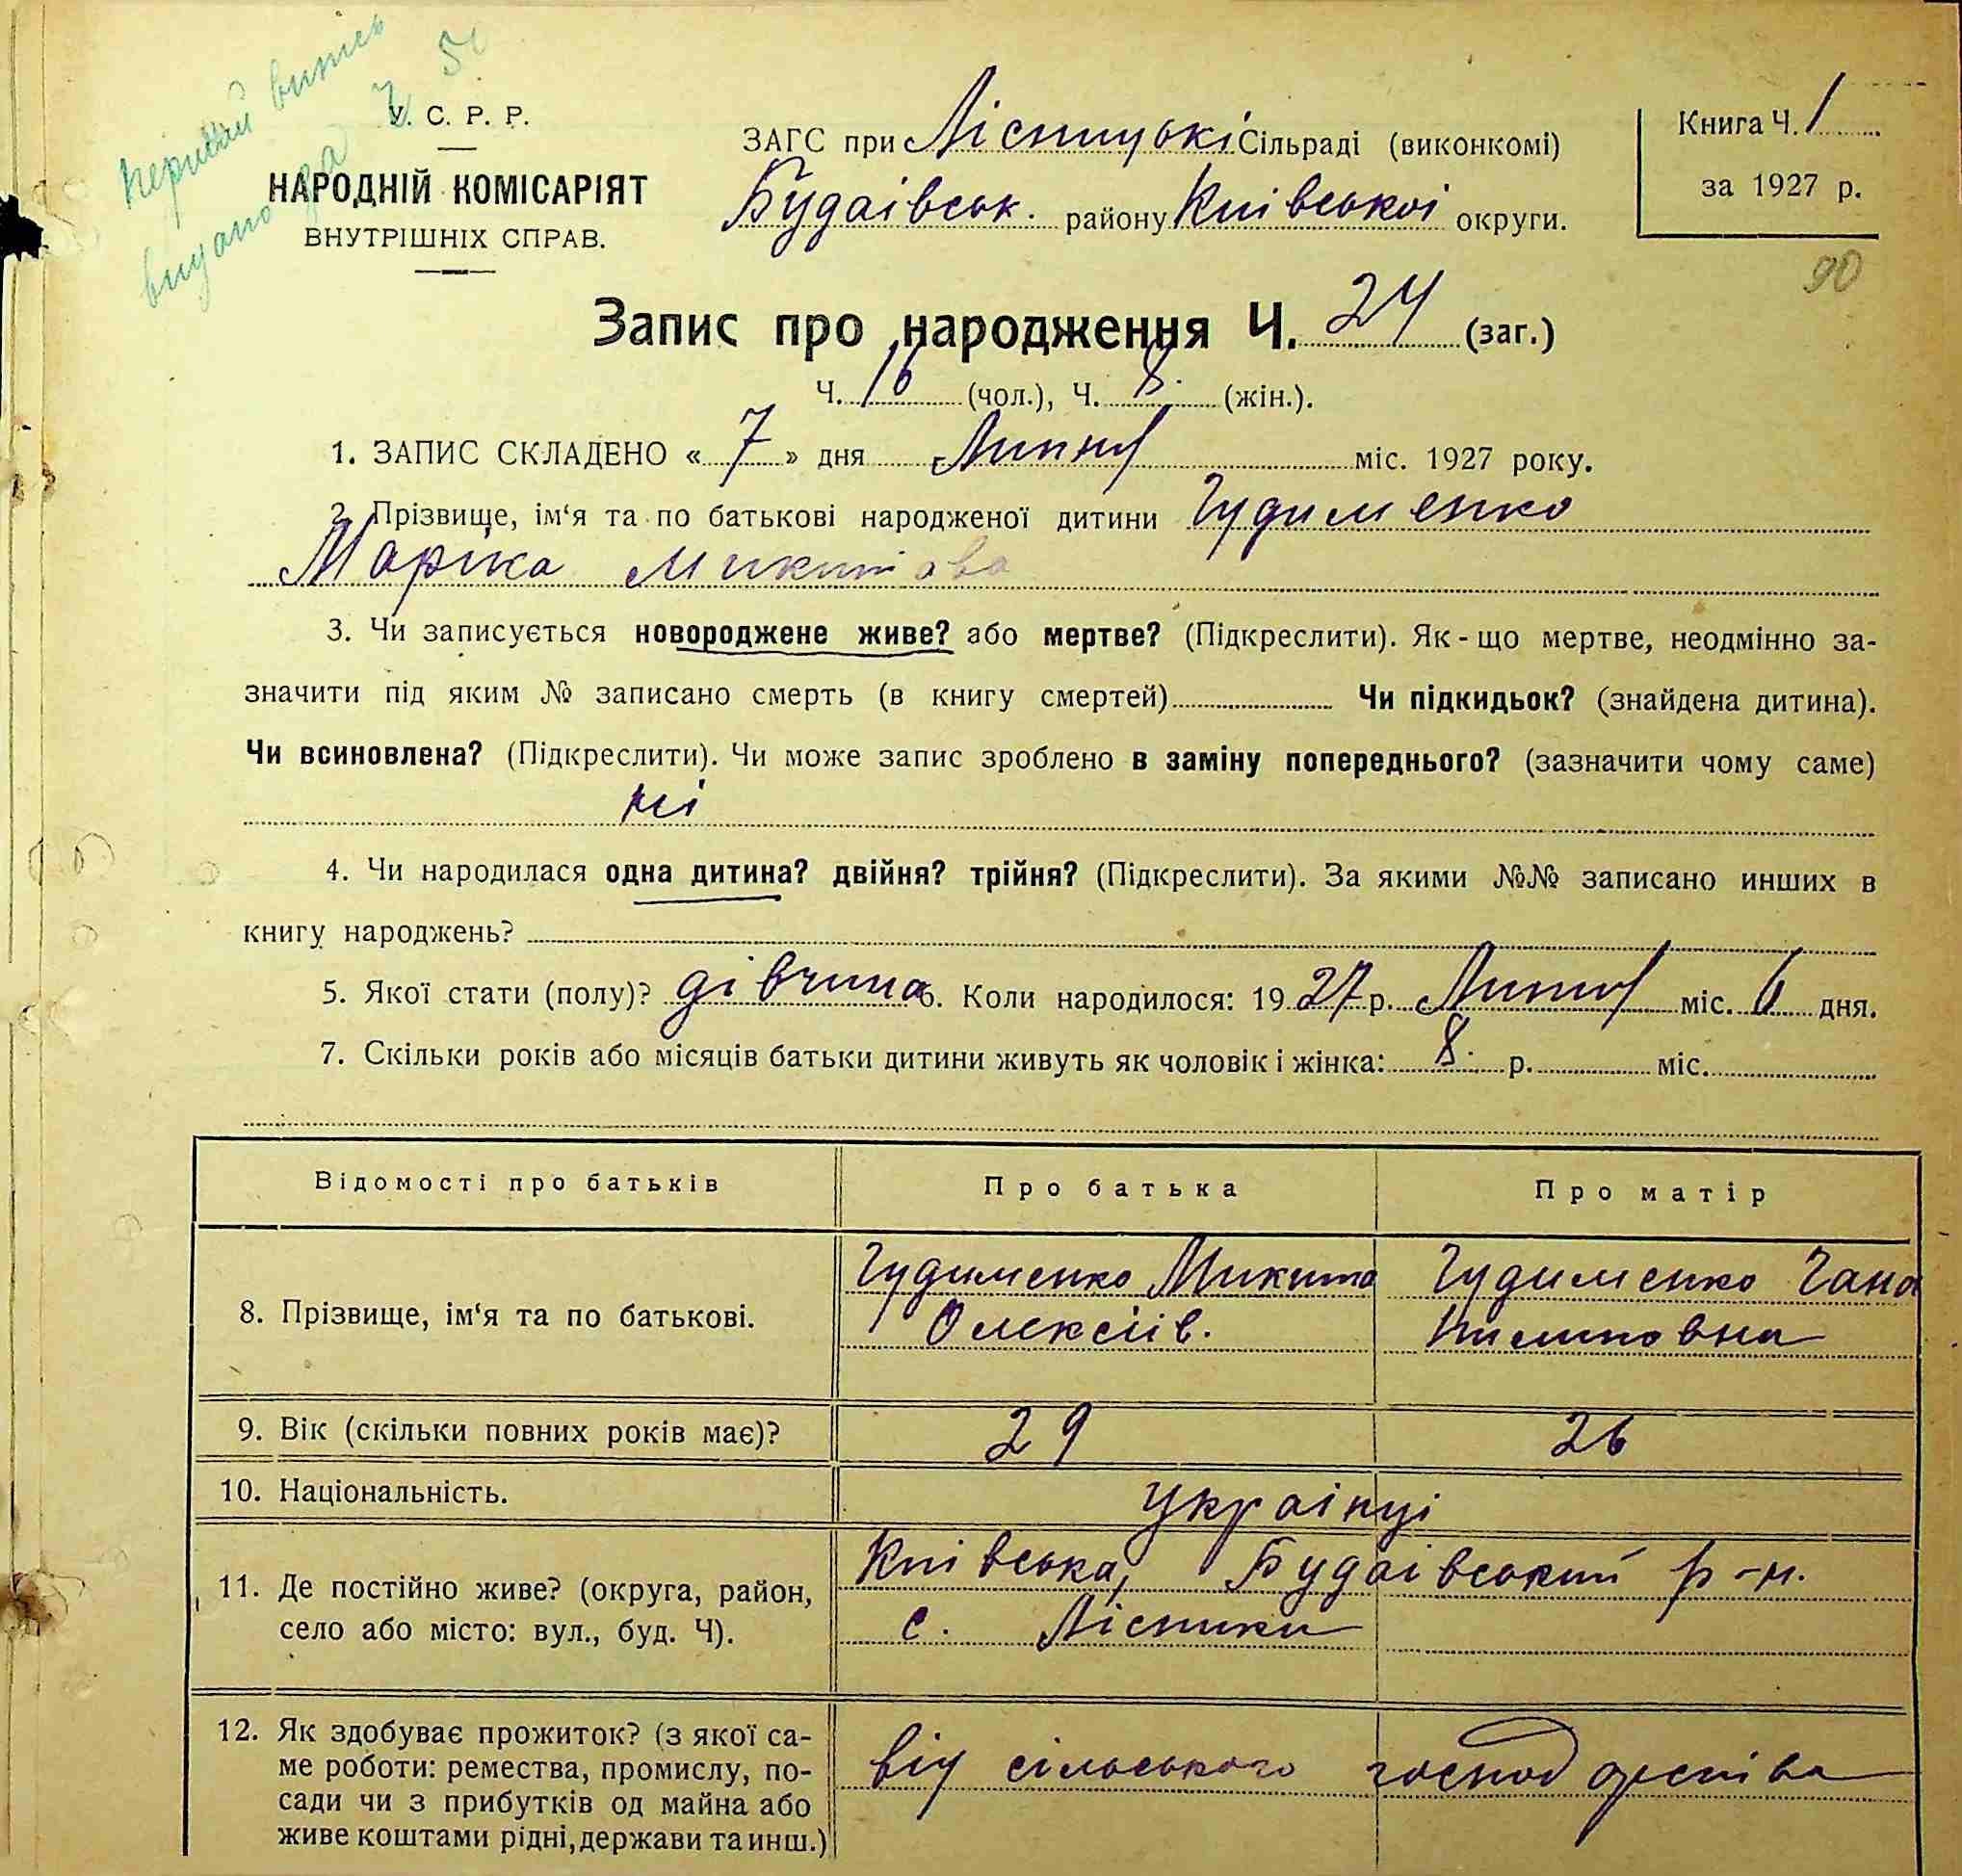 Перший випись
видано за Ч 5
У. С. Р. Р.
НАРОДНІЙ КОМІСАРІЯТ
ВНУТРІШНІХ СПРАВ.
ЗАГС при Лісницькі Сільраді (виконкомі)
Будаівськ. району Киівськоі округи.
Книга Ч. 1
за 1927 р.
90
Запис про народження Ч. 24 (заг.)
Ч. 16 (чол.), Ч. 8. (жін.).
1. ЗАПИС СКЛАДЕНО « 7 » дня Липня міс. 1927 року.
2. Прізвище, ім‘я та по батькові народженої дитини Гудименко
Маріка Микитова
3. Чи записується новороджене живе? або мертве? (Підкреслити). Як-що мертве, неодмінно за-
значити під яким № записано смерть (в книгу смертей) Чи підкидьок? (знайдена дитина).
Чи всиновлена? (Підкреслити). Чи може запис зроблено в заміну попереднього? (зазначити чому саме)
ні
4. Чи народилася одна дитина? двійня? трійня? (Підкреслити). За якими №№ записано инших в
книгу народжень?
5. Якої стати (полу)? дівчина 6. Коли народилося: 19 27 р. Липня міс. 6 дня.
7. Скільки років або місяців батьки дитини живуть як чоловік і жінка: 8. р. міс.
Відомості про батьків Про батька Про матір
8. Прізвище, ім‘я та по батькові.
Гудименко Микита Гудименко Гана
Олексіїв. Пилиповна
9. Вік (скільки повних років має)? 29 26
10. Національність. украінці
11. Де постійно живе? (округа, район,
село або місто: вул., буд. Ч).
Киівська, Будаівський р-н.
с. Лісники
12. Як здобуває прожиток? (з якої са-
ме роботи: ремества, промислу, по-
сади чи з прибутків од майна або
живе коштами рідні, держави та инш.)
від сільського господарства